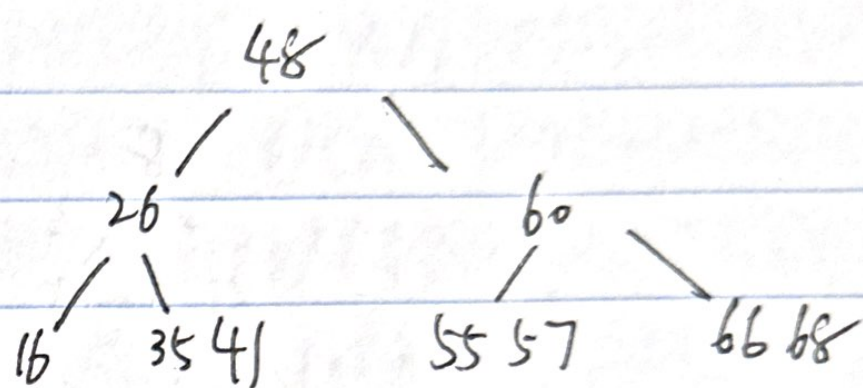 48
26 60
16 35 41 55 57 66 68